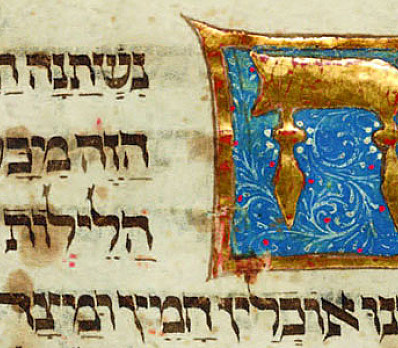 ה
נִשְׁתַּנָה הַ
הַזֶה מִכָּל
הַלֵילוֹת
נוּ אוֹכְלִין חָמֵץ וּמַצָה